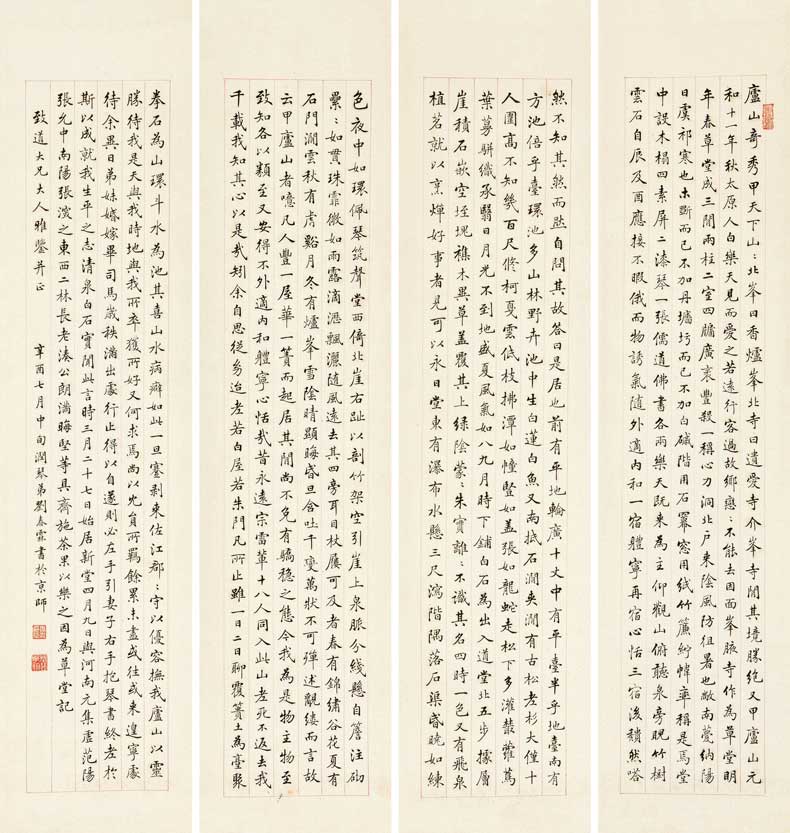 廬山奇秀甲天下山〻北峯曰香爐峯北寺曰遺愛寺介峯寺間其境勝絕又甲廬山元
和十一年秋太原人白樂天見而愛之若遠行客過故鄉戀〻不能去因面峯腋寺作為草堂明
年春草堂成三間兩柱二室四牖廣袤豐殺一稱心力洞北戶來陰風防徂暑也敞南甍納陽
日虞祁寒也木斲而已不加丹墻圬而已不加白磩階用石冪窓用紙竹簾紵幃率稱是焉堂
中設木榻四素屏二漆琴一張儒道佛書各兩樂天既來為主仰觀山俯聽泉旁睨竹樹
雲石自辰及酉應接不暇俄而物誘氣隨外適內和一宿體寧再宿心恬三宿後頹然嗒
然不知其然而然自問其故答曰是居也前有平地輪廣十丈中有平臺半乎地臺南有
方池倍乎臺環池多山林野卉池中生白蓮白魚又南抵石澗夾澗有古松老杉大僅十
人圍高不知幾百尺修柯戛雲低枝拂潭如幢豎如蓋張如龍蛇走松下多灌叢蘿蔦
葉蔓駢織承翳日月光不到地盛夏風氣如八九月時下鋪白石為出入道堂北五步據層
崖積石嵌空垤堄雜木異草蓋覆其上綠陰蒙〻朱實離〻不識其名四時一色又有飛泉
植茗就以烹燀好事者見可以永日堂東有瀑布水懸三尺瀉階隅落石渠昏曉如練
色夜中如環佩琴筑聲堂西倚北崖右趾以剖竹架空引崖上泉脈分綫懸自簷注砌
纍〻如貫珠霏微如雨露滴瀝飄灑隨風遠去其四旁耳目杖屨可及者春有錦繡谷花夏有
石門澗雲秋有虎谿月冬有爐峯雪陰晴顯晦昏旦含吐千變萬狀不可殫述覼縷而言故
云甲廬山者噫凡人豐一屋華一簀而起居其間尚不免有驕穩之態今我為是物主物至
致知各以類至又安得不外適內和體寧心恬哉昔永遠宗雷輩十八人同入此山老死不返去我
千載我知其心以是哉矧余自思從幼迨老若白屋若朱門凡所止雖一日二日聊覆簣土為臺聚
拳石為山環斗水為池其喜山水病癖如此一旦蹇剥來佐江郡〻守以優容撫我廬山以靈
勝待我是天與我時地與我所卒獲所好又何求焉尚以冗員所羈餘累未盡或往或來遑寧處
待余異日弟妹婚嫁畢司馬歲秩滿出處行止得以自遂則必左手引妻子右手抱琴書終老於
斯以成就我生平之志清泉白石實聞此言時三月二十七日始居新堂四月九日與河南元集虛范陽
張允中南陽張深之東西二林長老湊公朗滿晦堅等具齋施茶果以樂之因為草堂記
致道大兄大人雅鑒并正
辛酉七月中旬潤琴弟劉春霖書於京師